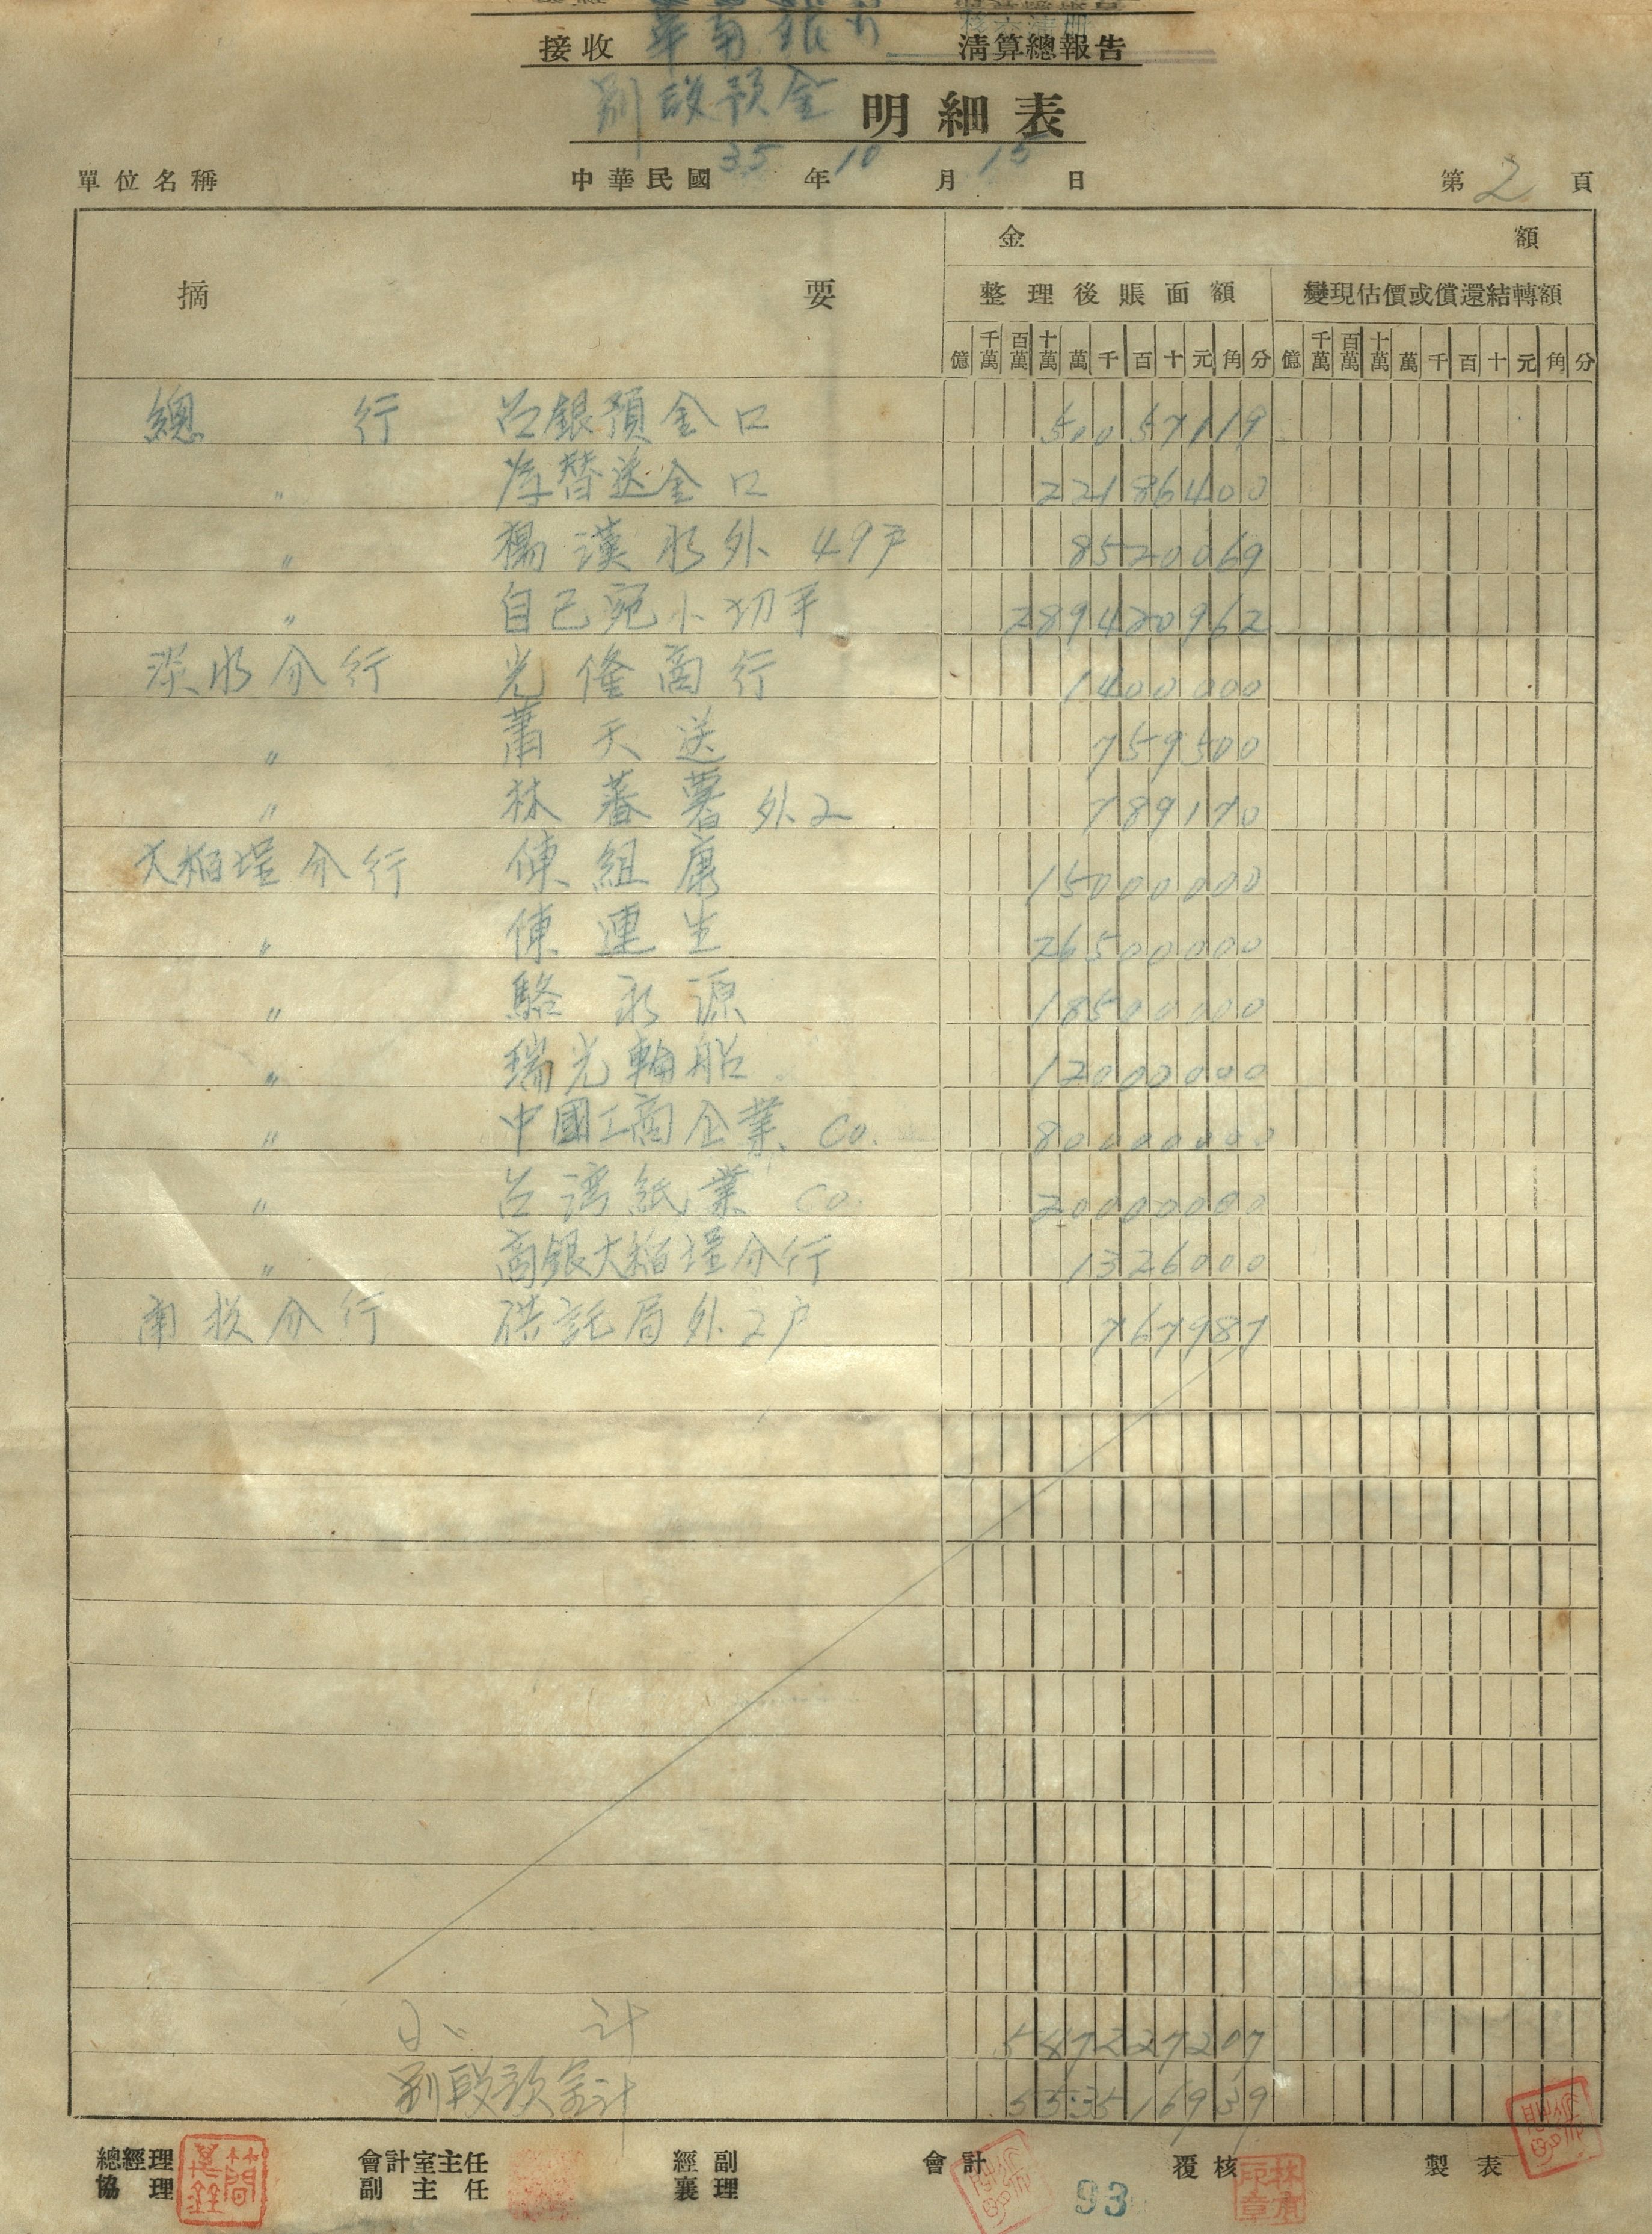 接收 華南銀行 清算總報告
別段預金 明細表
單位名稱 中華民國 35 年 10 月 15 日 第 2 頁
摘要 金額
整理後賬面額 變現估價或償還結轉額
億 千萬 百萬 十萬 萬 千 百 十 元 角 分 億 千萬 百萬 十萬 萬 千 百 十 元 角 分
總行 台銀預金口 50057119
〃 振替送金口 22186400
〃 楊漢水外 49戶 8520069
〃 自己宛小切手 289420962
淡水分行 光隆商行 1400000
〃 蕭天送 759500
〃 林蕃薯外2 789170
大稻埕分行 陳組康 15000000
〃 陳連生 26500000
〃 駱水源 18500000
〃 瑞光輪船 12000000
〃 中國工商企業 Co. 80000000
〃 台湾紙業 Co. 20000000
〃 商銀大稻埕分行 1326000
南投分行 信託局外2戶 767987
小計 547227207
別段預金計 553516939
總經理 協理 會計室主任 副主任 經副襄理 會計 覆核 製表
93